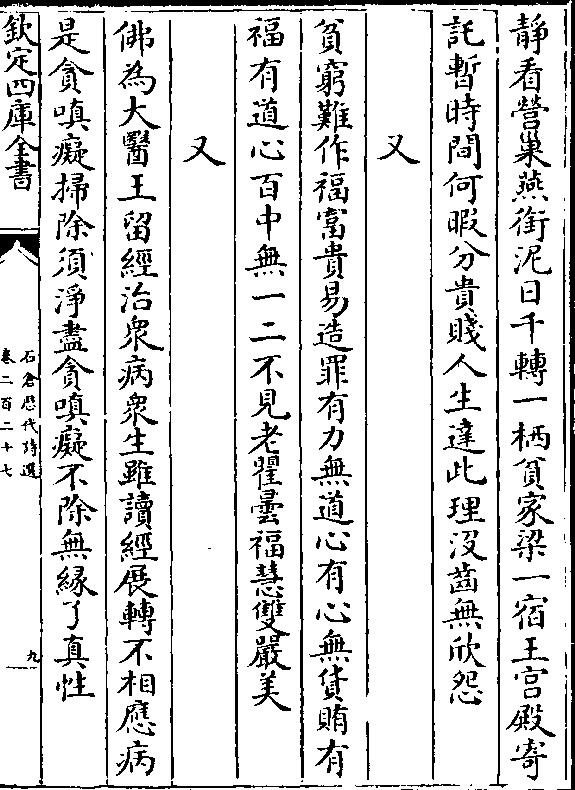 静看營巢燕銜泥日千轉一栖貧家梁一宿王宫殿寄
託暫時間何暇分貴賤人生達此理沒齒無欣怨
又
貧窮難作福富貴易造罪有力無道心有心無貨賄有
福有道心百中無一二不見老瞿曇福慧雙嚴美
又
佛為大醫王留經治衆病衆生雖讀經展轉不相應病
是貪嗔癡掃除須淨盡貪嗔癡不除無縁了真性
欽定四庫全書
石倉歴代詩選
卷二百二十七
九